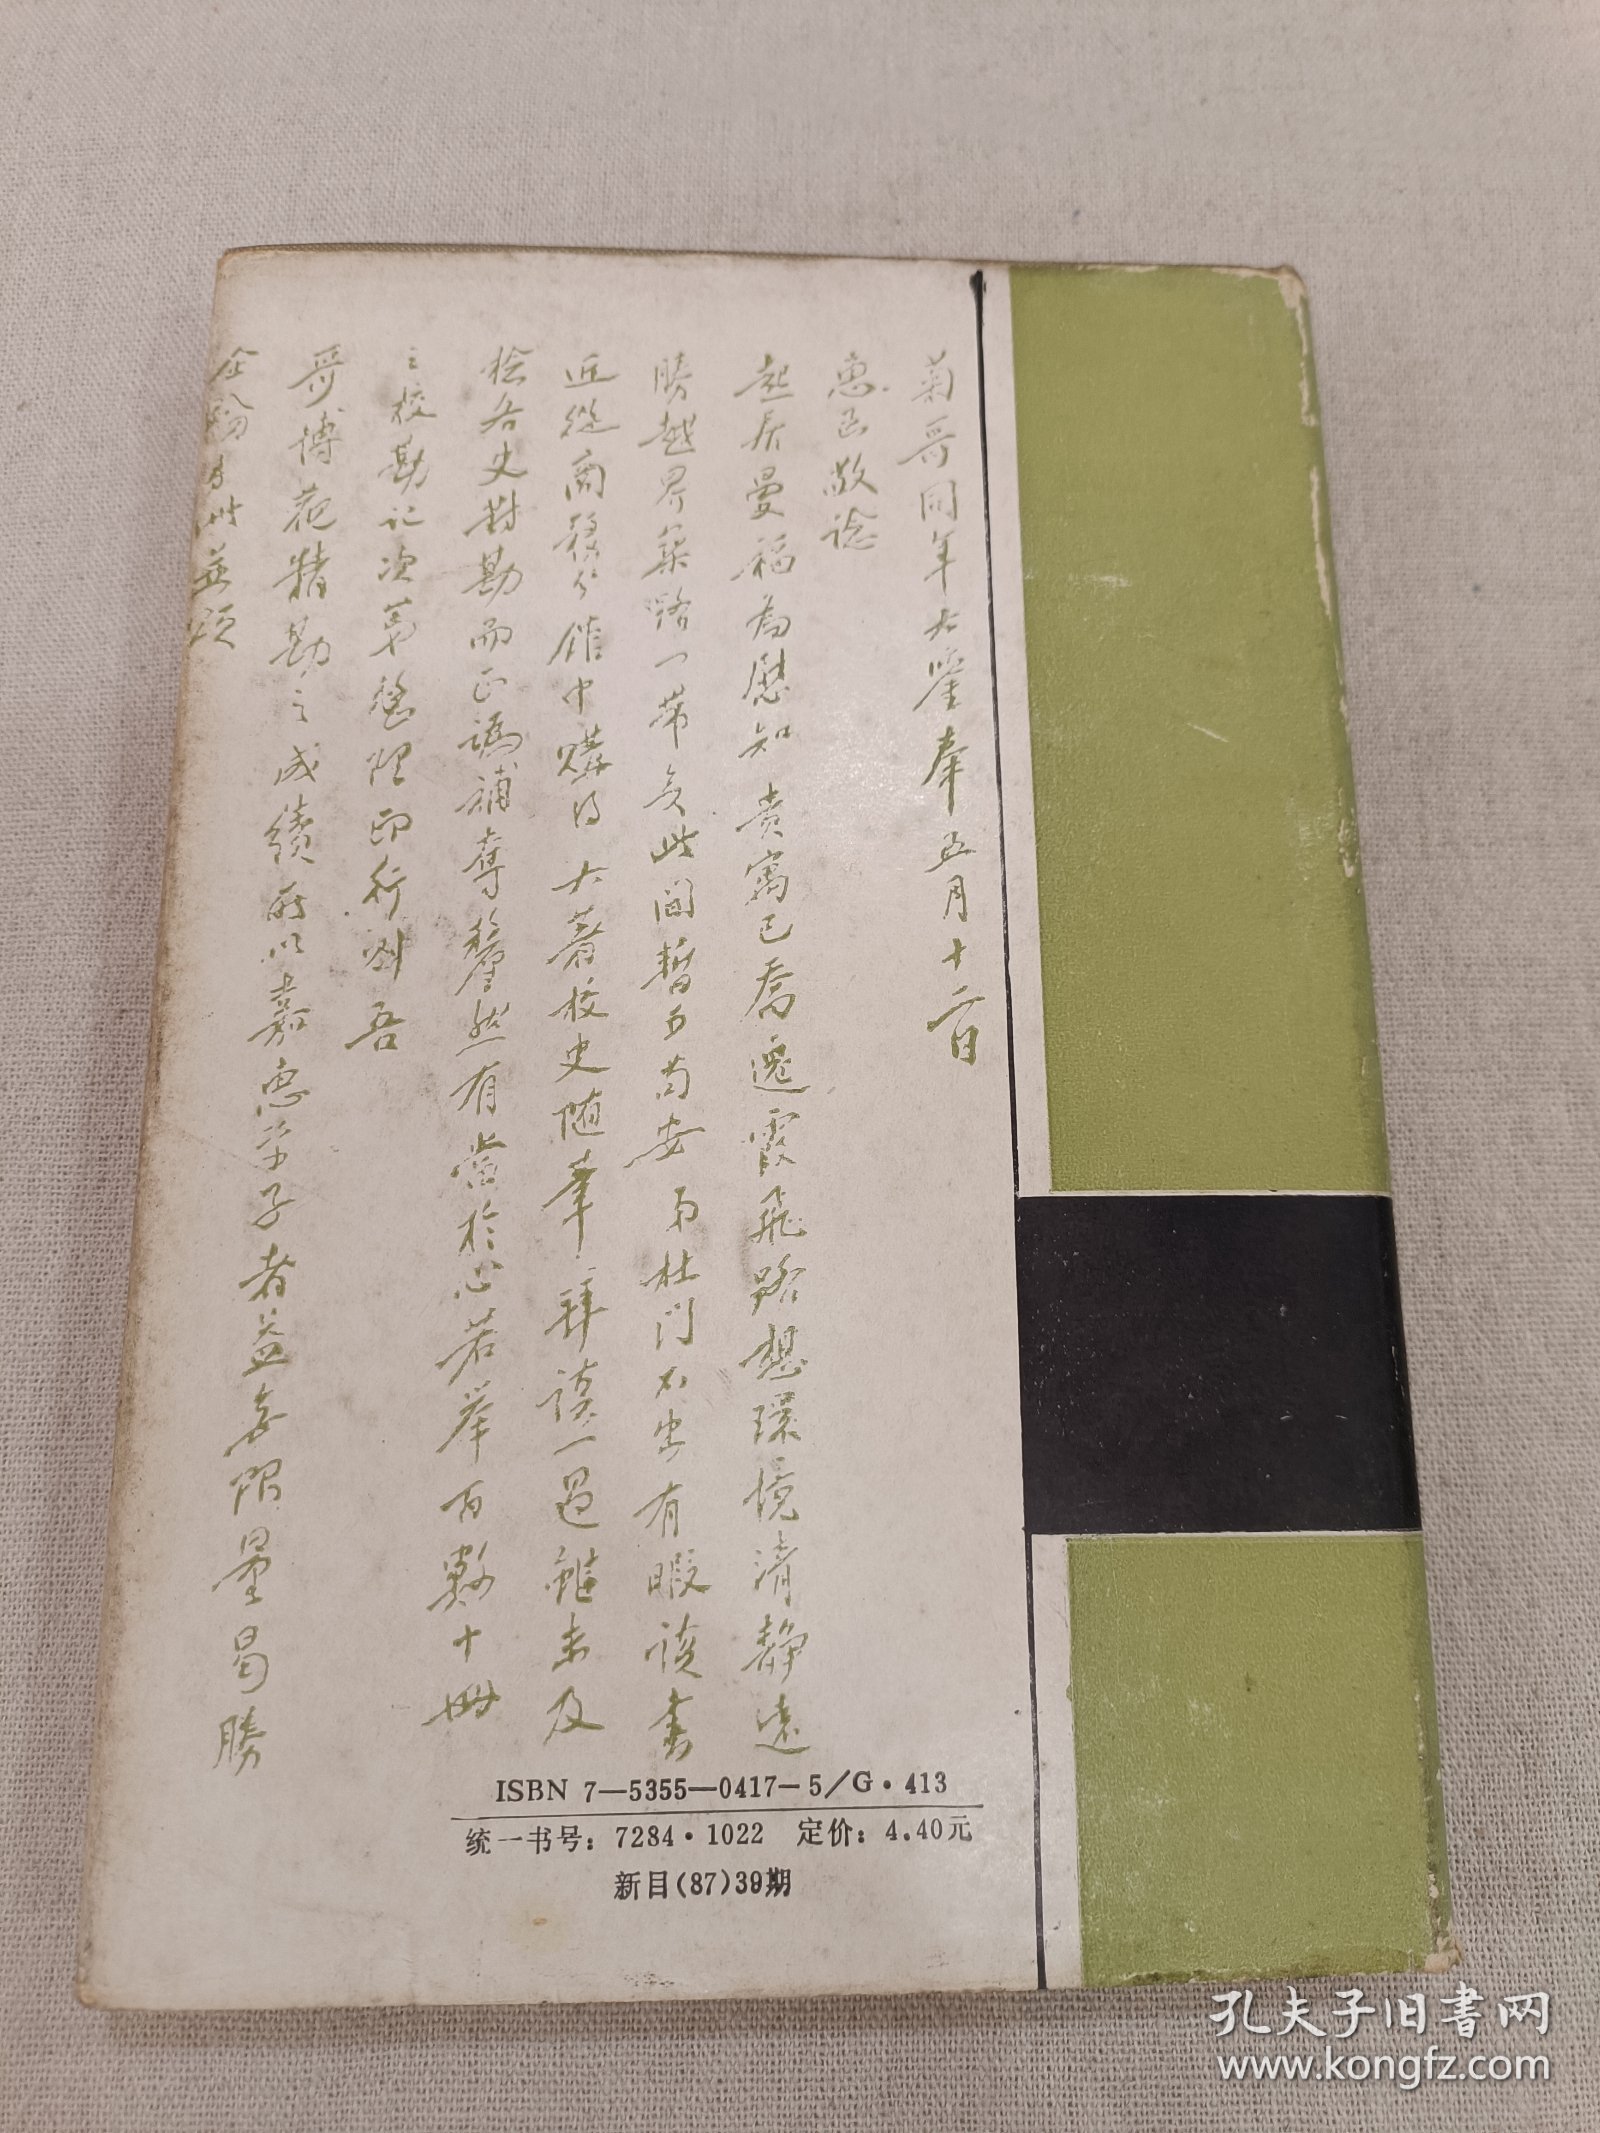 菊哥同年大鉴奉五月十二日
惠函敬谂
起居曼福为慰知 贵寓已乔迁霞飞路想环境清静远
胜越界筑路一带矣此间暂可苟安 弟杜门不出有暇读书
近从商务分馆中購得 大著校史随筆 拜读一过虽未及
检各史對勘而正讹補奪釐然有当於心若举百數十册
之校勘记次第整理印行则吾
哥博范精勘之成績所以嘉惠学子者益无限量曷勝
企盼 专此并颂
ISBN 7—5355—0417—5/G·413
统一书号：7284·1022 定价：4.40元
新目(87)39期
孔夫子旧书网
www.kongfz.com